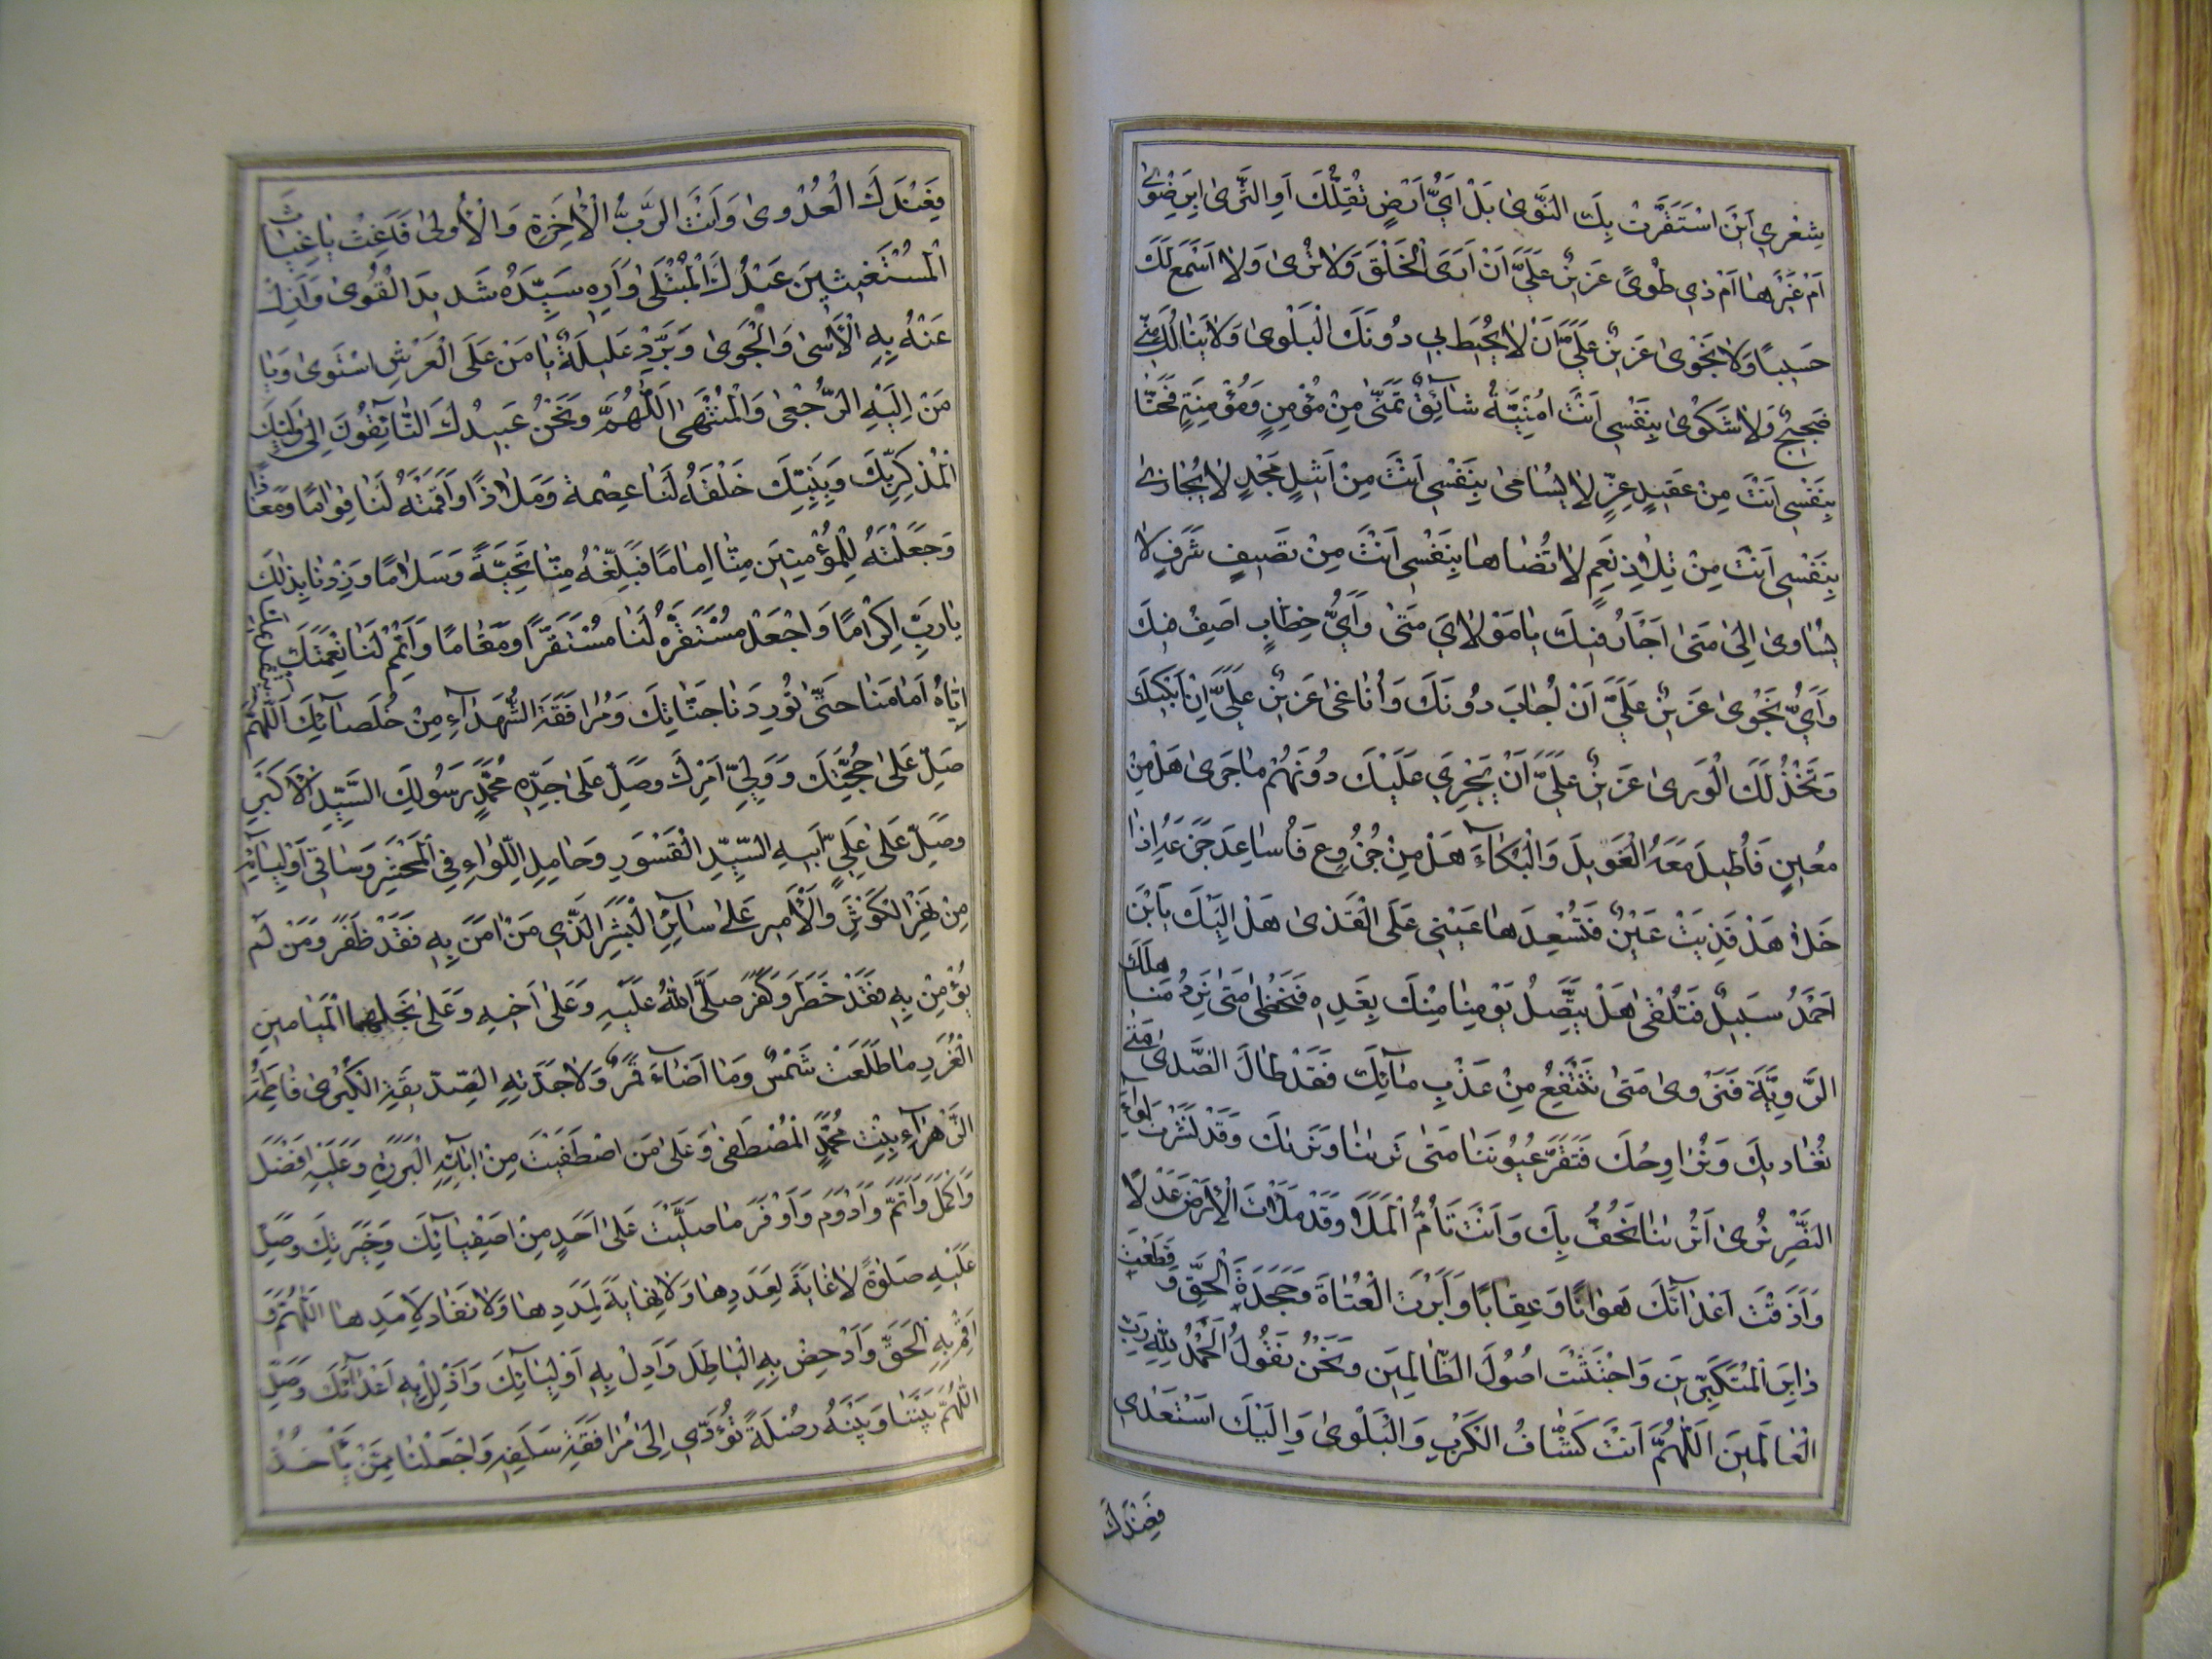 شِعْرِي اَيْنَ اسْتَقَرَّتْ بِكَ النَّوىٰ بَلْ اَيُّ اَرْضٍ تُقِلُّكَ اَوِ الثَّرىٰ اَبِرَضْوىٰ
اَمْ غَيْرِهٰا اَمْ ذِي طُوىً عَزِيزٌ عَلَيَّ اَنْ اَرَى الْخَلْقَ وَلاٰ تُرىٰ وَلاٰ اَسْمَعُ لَكَ
حَسِيسًا وَلاٰ نَجْوىٰ عَزِيزٌ عَلَيَّ اَنْ لاٰ يُحِيطَ بِي دُونَكَ الْبَلْوىٰ وَلاٰ يَنٰالُكَ مِنّي
ضَجِيجٌ وَلاٰ شَكْوىٰ بِنَفْسِي اَنْتَ اُمْنِيَّةُ شٰآئِقٍ تَمَنّٰى مِنْ مُؤْمِنٍ وَمُؤْمِنَةٍ فَحَنّٰا
بِنَفْسِي اَنْتَ مِنْ عَقِيدِ عِزٍّ لاٰ يُسٰامىٰ بِنَفْسِي اَنْتَ مِنْ اَثِيلِ مَجْدٍ لاٰ يُجٰازىٰ
بِنَفْسِي اَنْتَ مِنْ تِلاٰدِ نِعَمٍ لاٰ تُضٰاهٰا بِنَفْسِي اَنْتَ مِنْ نَصِيفِ شَرَفٍ لاٰ
يُسٰاوىٰ اِلىٰ مَتىٰ اَحٰارُ فِيكَ يٰا مَوْلاٰيَ مَتىٰ وَاَيُّ خِطٰابٍ اَصِفُ فِيكَ
وَاَيُّ نَجْوىٰ عَزِيزٌ عَلَيَّ اَنْ اُجٰابَ دُونَكَ وَاُنٰاغىٰ عَزِيزٌ عَلَيَّ اَنْ اَبْكِيَكَ
وَيَخْذُلَكَ الْوَرىٰ عَزِيزٌ عَلَيَّ اَنْ يَجْرِيَ عَلَيْكَ دُونَهُمْ مٰا جَرىٰ هَلْ مِنْ
مُعِينٍ فَاُطِيلَ مَعَهُ الْعَوِيلَ وَالْبُكٰآءَ هَلْ مِنْ جَزُوعٍ فَاُسٰاعِدَ جَزَعَهُ اِذٰا
خَلاٰ هَلْ قَذِيَتْ عَيْنٌ فَتُسْعِدَهٰا عَيْنِي عَلَى الْقَذىٰ هَلْ اِلَيْكَ يَابْنَ
اَحْمَدَ سَبِيلٌ فَتُلْقىٰ هَلْ يَتَّصِلُ يَوْمُنٰا مِنْكَ بِغَدِهِ فَنَحْظىٰ مَتىٰ نَرِدُ مَنٰاهِلَكَ
الرَّوِيَّةَ فَنَرْوىٰ مَتىٰ نَنْتَفِعُ مِنْ عَذْبِ مٰآئِكَ فَقَدْ طٰالَ الصَّدىٰ مَتىٰ
نُغٰادِيكَ وَنُرٰاوِحُكَ فَتَقَرَّ عُيُونُنٰا مَتىٰ تَرٰىنٰا وَنَرٰىكَ وَقَدْ نَشَرْتَ لِوٰآءَ
النَّصْرِ تُرىٰ اَتَرٰىنٰا نَحُفُّ بِكَ وَاَنْتَ تَأُمُّ الْمَلَأَ وَقَدْ مَلَأْتَ الْاَرْضَ عَدْلاً
وَاَذَقْتَ اَعْدٰآئَكَ هَوٰانًا وَعِقٰابًا وَاَبَرْتَ الْعُتٰاةَ وَجَحَدَةَ الْحَقِّ وَقَطَعْتَ
دٰابِرَ الْمُتَكَبِّرِينَ وَاجْتَثَثْتَ اُصُولَ الظّٰالِمِينَ وَنَحْنُ نَقُولُ الْحَمْدُ لِلّٰهِ رَبِّ
الْعٰالَمِينَ اَللّٰهُمَّ اَنْتَ كَشّٰافُ الْكَرْبِ وَالْبَلْوىٰ وَاِلَيْكَ اَسْتَعْدِي
فَعِنْدَكَ
فَعِنْدَكَ الْعَدْوىٰ وَاَنْتَ الرَّبُّ الْاٰخِرَةِ وَالْاُولىٰ فَاَغِثْ يٰا غِيٰاثَ
الْمُسْتَغِيثِينَ عَبْدَكَ الْمُبْتَلىٰ وَاَرِهِ سَيِّدَهُ شَدِيدَ الْقُوىٰ وَاَزِلْ
عَنْهُ بِهِ الْاَسىٰ وَالْجَوىٰ وَبَرِّدْ غَلِيلَهُ يٰا مَنْ عَلَى الْعَرْشِ اسْتَوىٰ وَيٰا
مَنْ اِلَيْهِ الرُّجْعىٰ وَالْمُنْتَهىٰ اَللّٰهُمَّ وَنَحْنُ عَبِيدُكَ التّٰآئِقُونَ اِلىٰ وَلِيِّكَ
الْمُذَكِّرِ بِكَ وَبِنَبِيِّكَ خَلَقْتَهُ لَنٰا عِصْمَةً وَمَلاٰذًا وَاَقَمْتَهُ لَنٰا قِوٰامًا وَمَعٰاذًا
وَجَعَلْتَهُ لِلْمُؤْمِنِينَ مِنّٰا اِمٰامًا فَبَلِّغْهُ مِنّٰا تَحِيَّةً وَسَلاٰمًا وَزِدْنٰا بِذٰلِكَ
يٰا رَبِّ اِكْرٰامًا وَاجْعَلْ مُسْتَقَرَّهُ لَنٰا مُسْتَقَرًّا وَمَقٰامًا وَاَتْمِمْ لَنٰا نِعْمَتَكَ
اِيّٰاهُ اَمٰامَنٰا حَتّىٰ تُورِدَنٰا جَنّٰاتِكَ وَمُرٰافَقَةَ الشُّهَدٰآءِ مِنْ خُلَصٰآئِكَ اَللّٰهُمَّ
صَلِّ عَلىٰ حُجَّتِكَ وَوَلِيِّ اَمْرِكَ وَصَلِّ عَلىٰ جَدِّهِ مُحَمَّدٍ رَسُولِكَ السَّيِّدِ الْاَكْبَرِ
وَصَلِّ عَلىٰ عَلِيٍّ اَبِيهِ السَّيِّدِ الْقَسْوَرِ وَحٰامِلِ اللِّوٰاءِ فِي الْمَحْشَرِ وَسٰاقِي اَوْلِيٰآئِهِ
مِنْ نَهَرِ الْكَوْثَرِ وَالْاَمِيرِ عَلىٰ سٰآئِرِ الْبَشَرِ الَّذِي مَنْ اٰمَنَ بِهِ فَقَدْ ظَفَرَ وَمَنْ لَمْ
يُؤْمِنْ بِهِ فَقَدْ خَطَرَ وَكَفَرَ صَلَّى اللّٰهُ عَلَيْهِ وَعَلىٰ اَخِيهِ وَعَلىٰ نَجْلِهِمَا الْمَيٰامِينَ
الْغُرَرِ مٰا طَلَعَتْ شَمْسٌ وَمٰا اَضٰآءَ قَمَرٌ وَلاٰ جَدَّتِهِ الصِّدّيقَةِ الْكُبْرىٰ فٰاطِمَةَ
الزَّهْرٰآءِ بِنْتِ مُحَمَّدٍ الْمُصْطَفىٰ وَعَلىٰ مَنِ اصْطَفَيْتَ مِنْ اٰبٰآئِهِ الْبَرَرَةِ وَعَلَيْهِ اَفْضَلَ
وَاَكْمَلَ وَاَتَمَّ وَاَدْوَمَ وَاَوْفَرَ مٰا صَلَّيْتَ عَلىٰ اَحَدٍ مِنْ اَصْفِيٰآئِكَ وَخِيَرَتِكَ وَصَلِّ
عَلَيْهِ صَلٰوةً لاٰ غٰايَةَ لِعَدَدِهٰا وَلاٰ نِهٰايَةَ لِمَدَدِهٰا وَلاٰ نَفٰادَ لِاَمَدِهٰا اَللّٰهُمَّ وَ
اَقِمْ بِهِ الْحَقَّ وَاَدْحِضْ بِهِ الْبٰاطِلَ وَاَدِلْ بِهِ اَوْلِيٰآئَكَ وَاَذْلِلْ بِهِ اَعْدٰآئَكَ وَصِلِ
اللّٰهُمَّ بَيْنَنٰا وَبَيْنَهُ وُصْلَةً تُؤَدِّي اِلىٰ مُرٰافَقَةِ سَلَفِهِ وَاجْعَلْنٰا مِمَّنْ يَأْخُذُ